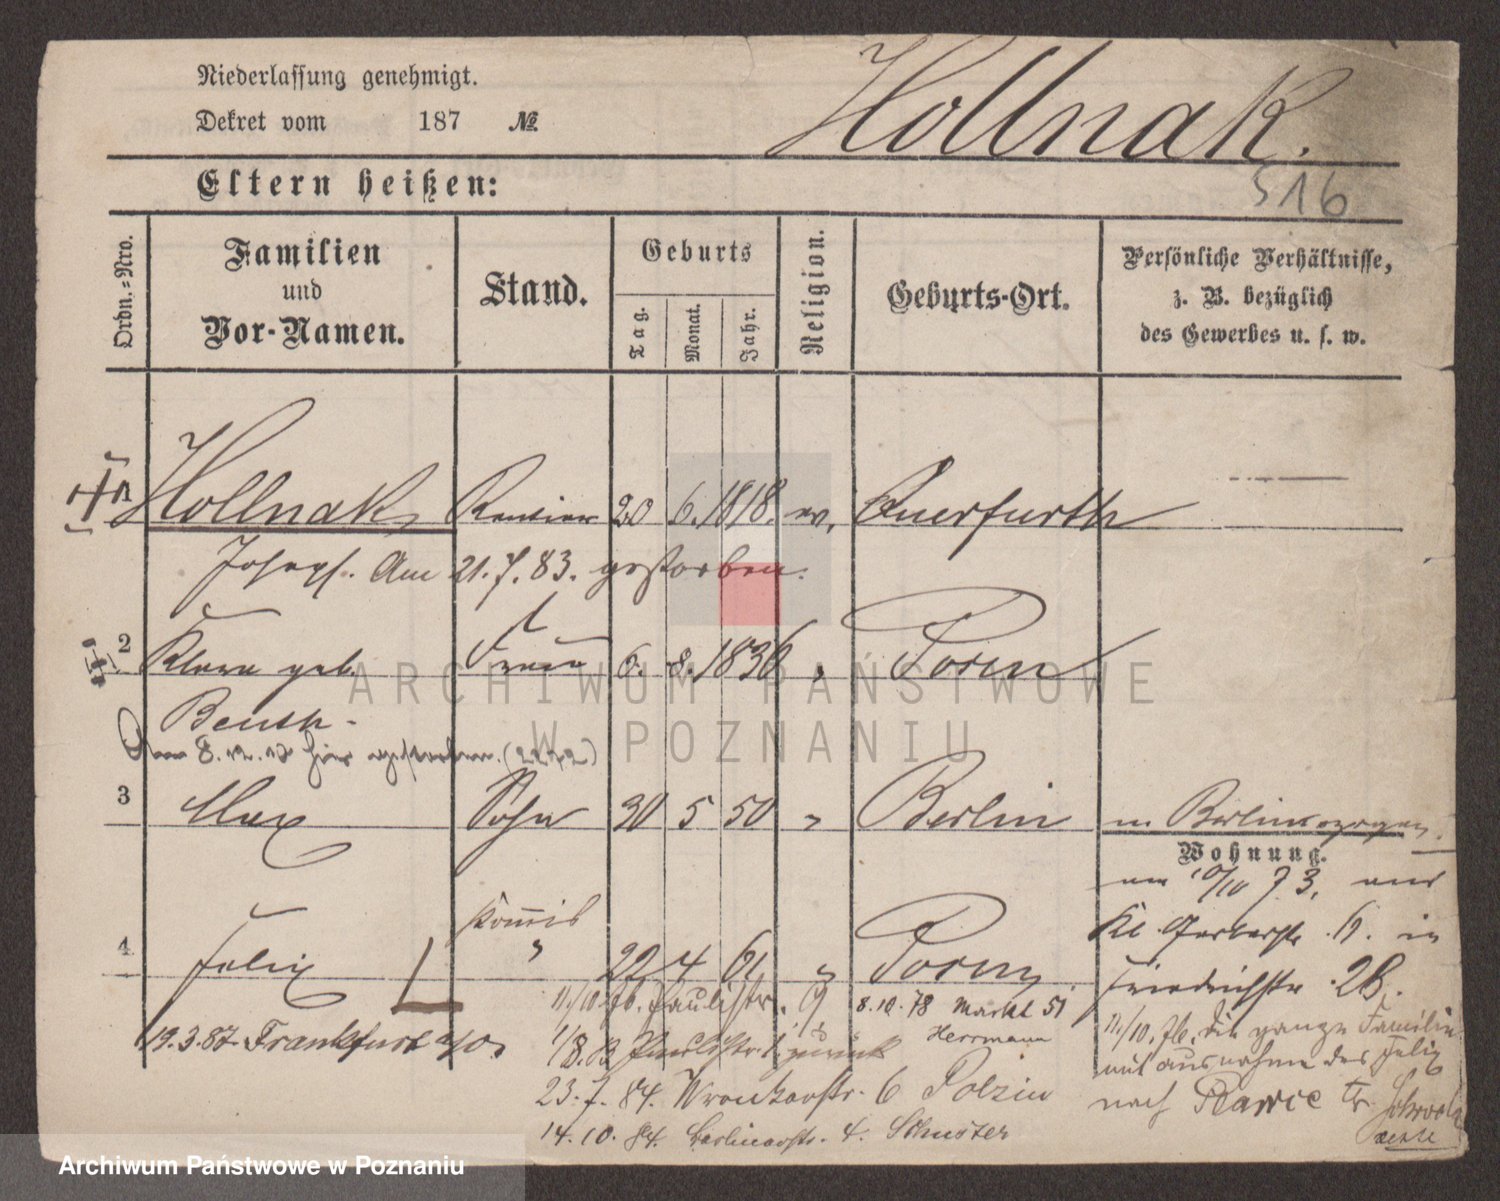 Niederlassung genehmigt.
Dekret vom 187 №
Hollnak.
516
Eltern heißen:
Ordn.-Nro.
Familien
und
Vor-Namen.
Stand.
Geburts
Tag.
Monat.
Jahr.
Religion.
Geburts-Ort.
Persönliche Verhältnisse,
z. B. bezüglich
des Gewerbes u. s. w.
Hollnak Rentier 20 6. 1818. ev. Querfurth
Joseph. Am 21.7.83. gestorben.
2 Klara geb. Frau 6. 8. 1836 " Posen
8.12. hier gestorben. (2272)
3 Max Sohn 30 5 50 " Berlin
Wohnung.
10/10 73, aus
Kl. Gerberstr. in
Friedrichstr. 28.
4 Felix Kommis " 22 4 61 " Posen
11/10. 76. Paulistr. 9 8.10.78 Markt 51
Herrmann
11/10. 76. die ganze Familie
mit ausnahme des Felix
nach
19.3.87 Frankfurt a/O.
Paulistr. zurück
23.7.84. Wronkerstr. 6 Polzin
14.10.84. Berlinerstr. 4. Schuster
ARCHIWUM PAŃSTWOWE
W POZNANIU
Archiwum Państwowe w Poznaniu